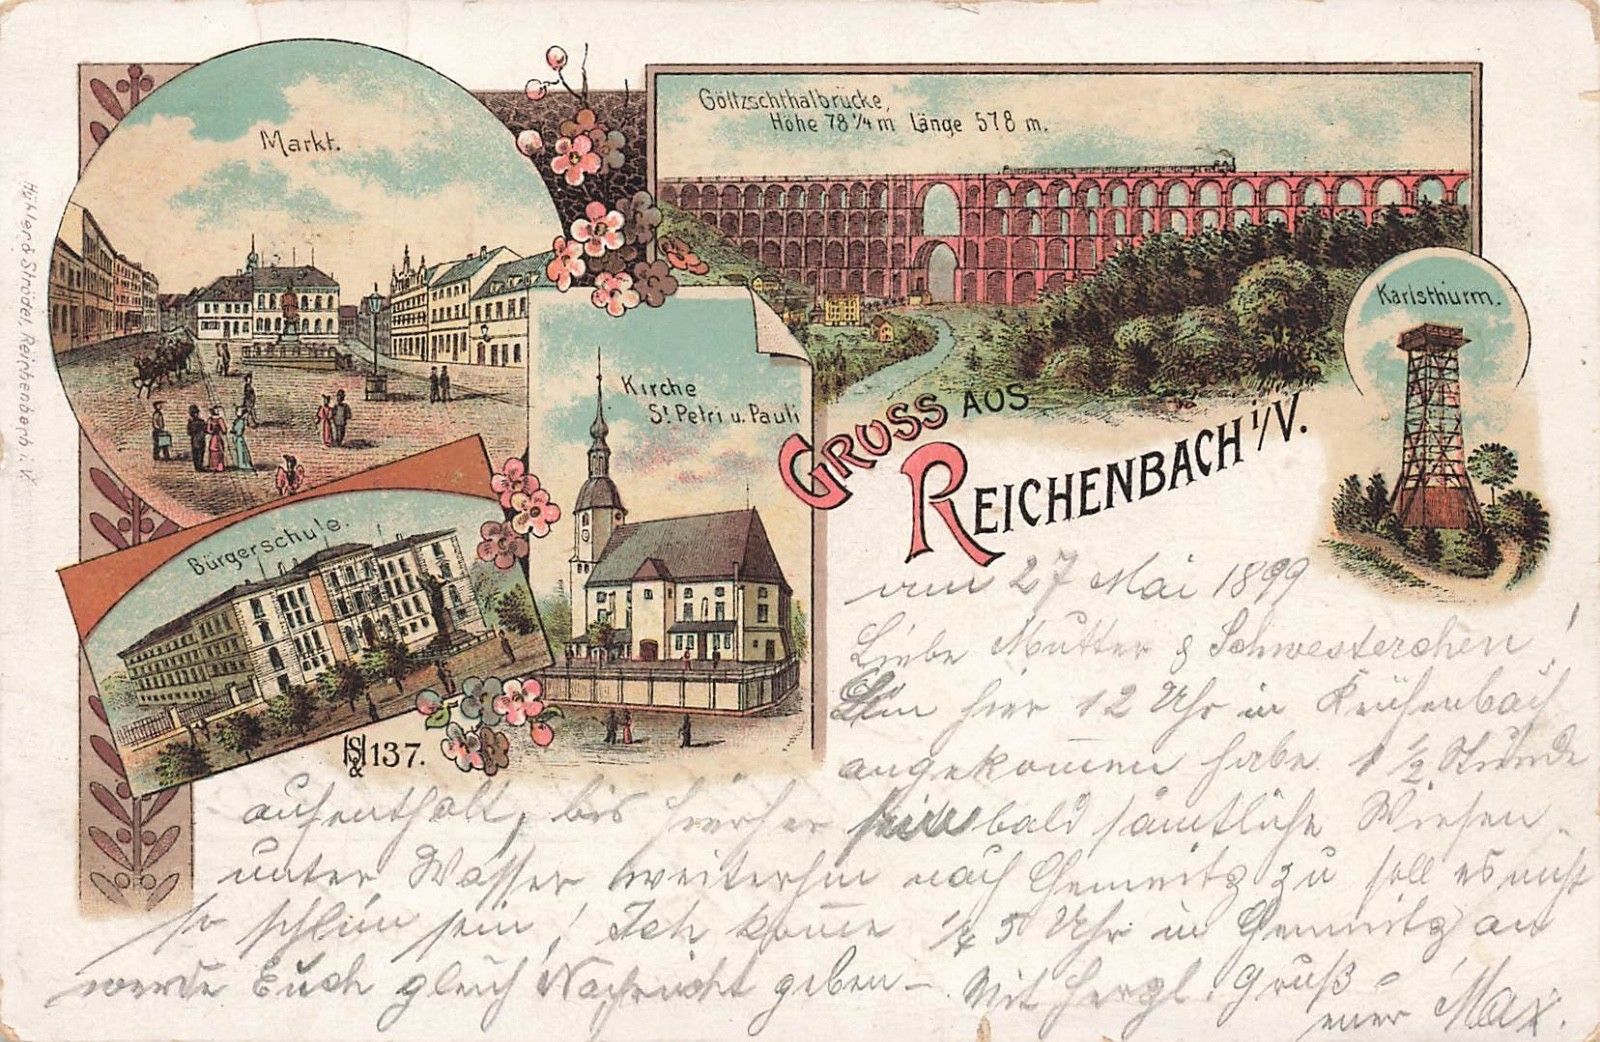 Markt.
Göltzschthalbrücke,
Höhe 78 1/4 m Länge 578 m.
Karlsthurm.
Kirche
St. Petri u. Pauli
Bürgerschule.
GRUSS AUS
REICHENBACH i/V.
HS & 137.
Reichenbach i. V.
27 Mai 1899
Liebe Mutter & Schwesterchen!
hier 12 Uhr in Reichenbach
angekommen habe 1 1/2 Stunde
aufenthalt, bis hierher bald sämtliche Wiesen
unter Wasser weiterhin nach Chemnitz zu soll es nicht
so schlim sein! Ich kome 1/4 5 Uhr in Chemnitz an
werde Euch gleich Nachricht geben – Mit herzl. Gruß
euer Max.